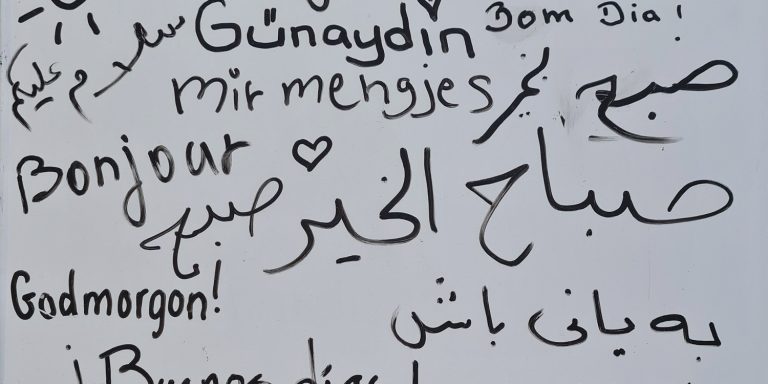 سلام علیکم
Günaydin
Bom Dia!
mir mengjes
صبح بخیر
Bonjour
صباح الخير
صبح
Godmorgon!
به یانی باش
¡Buenos días!